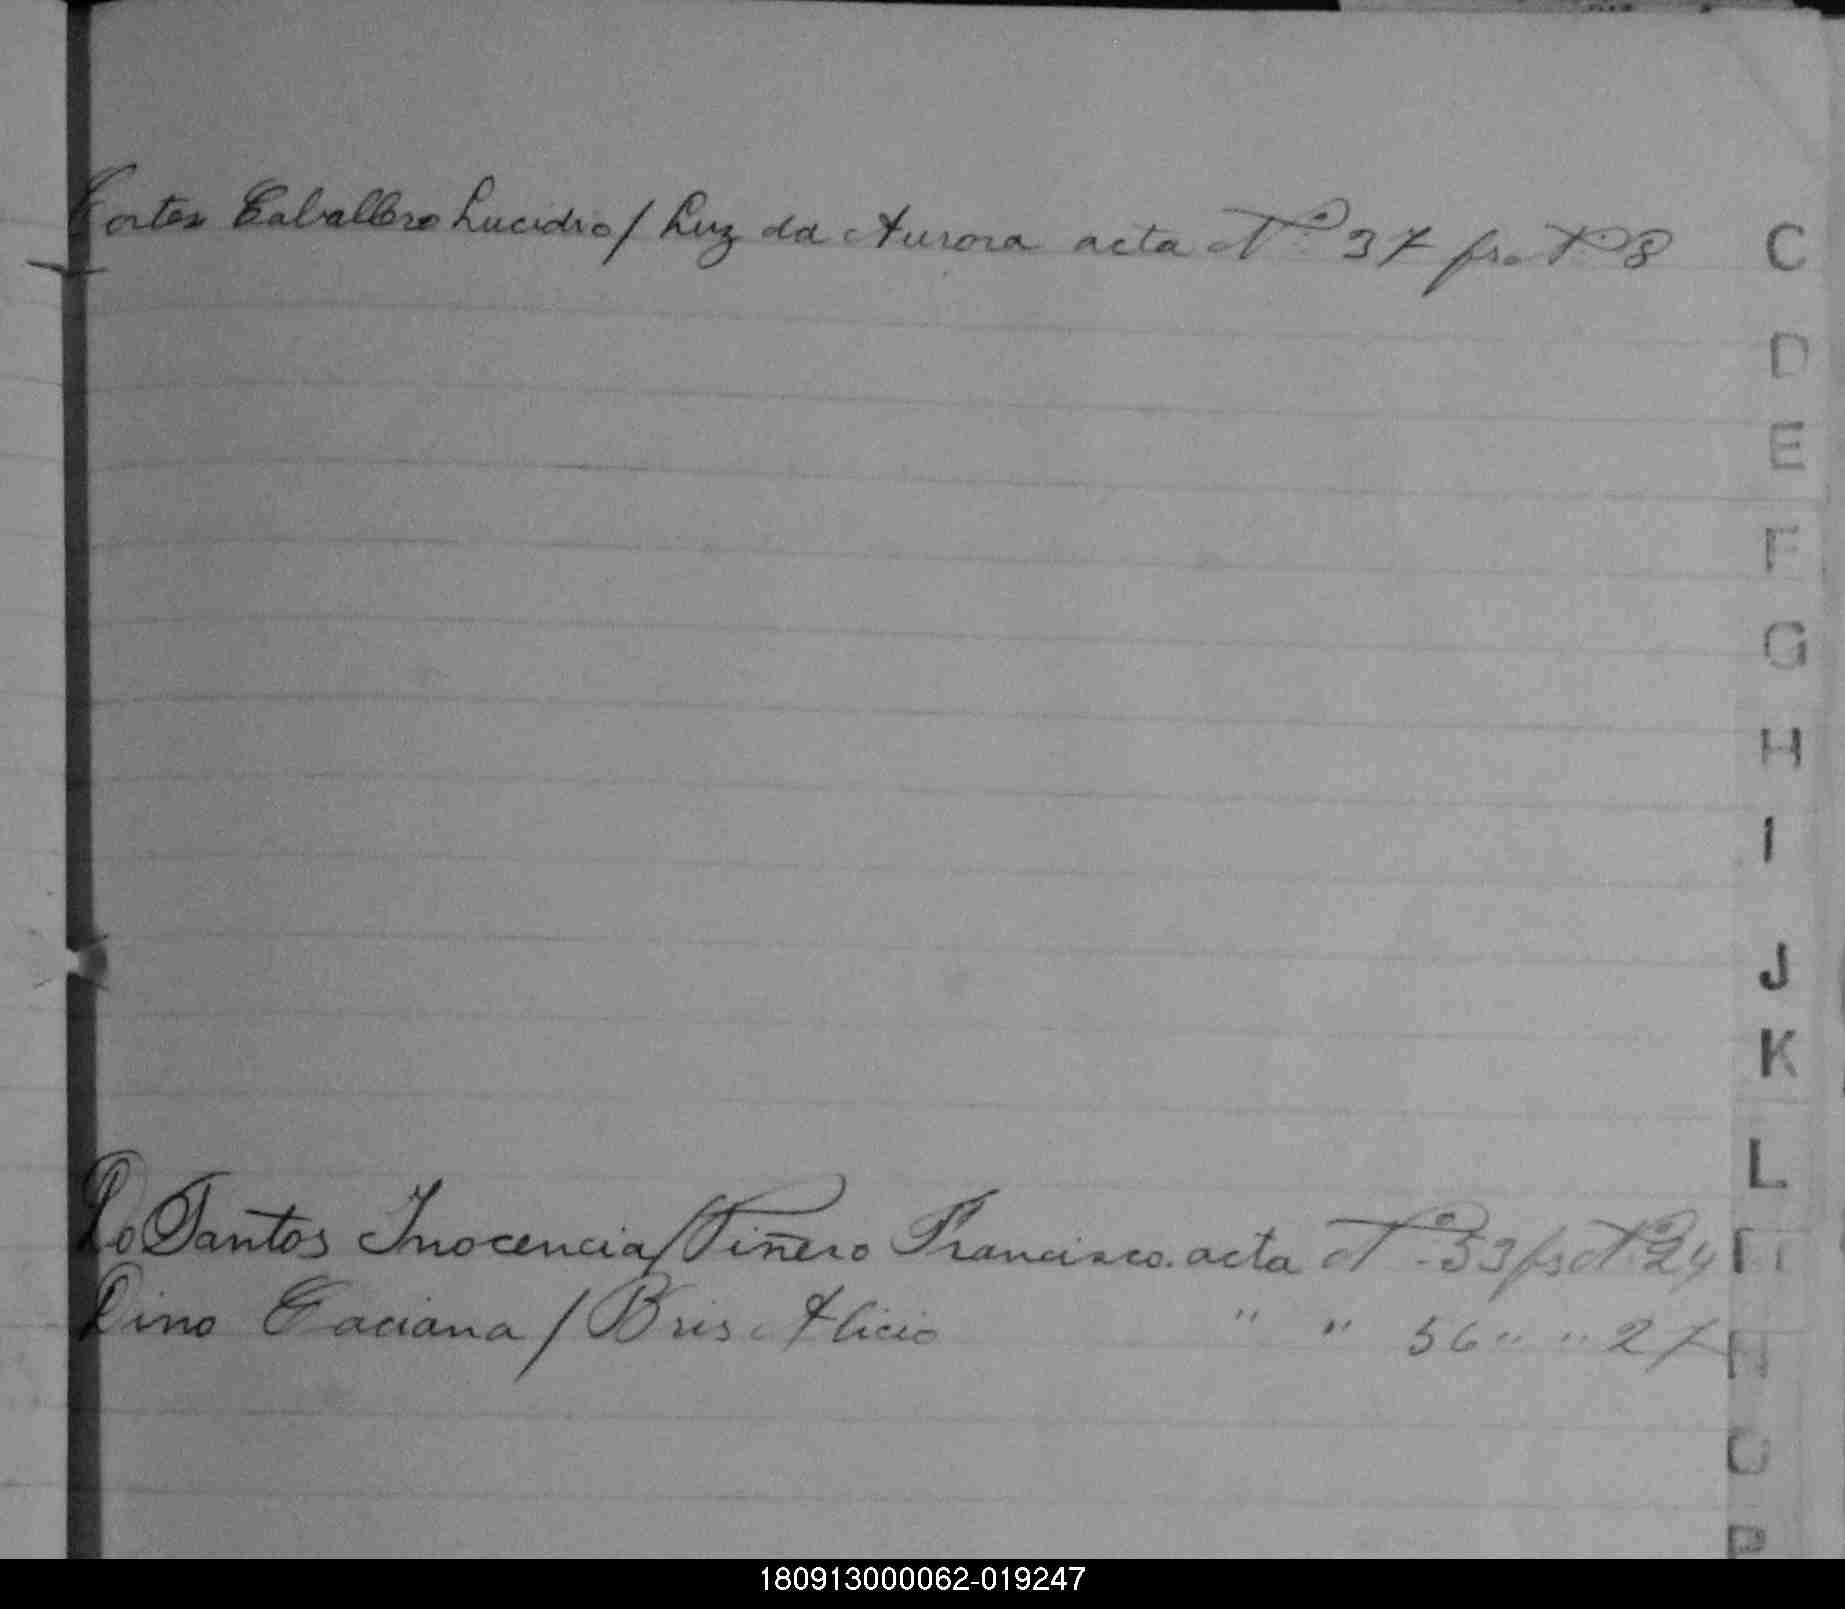 Cortes Caballero Lucidio / Luz da Aurora acta Nº 37 fs. Nº 8
C
D
E
F
G
H
I
J
K
L
Do Santos Inocencia / Piñero Francisco. acta Nº 33 fs Nº 24
Dino Gaciana / Bris Alicio " " 56 " " 27
M
N
O
P
180913000062-019247